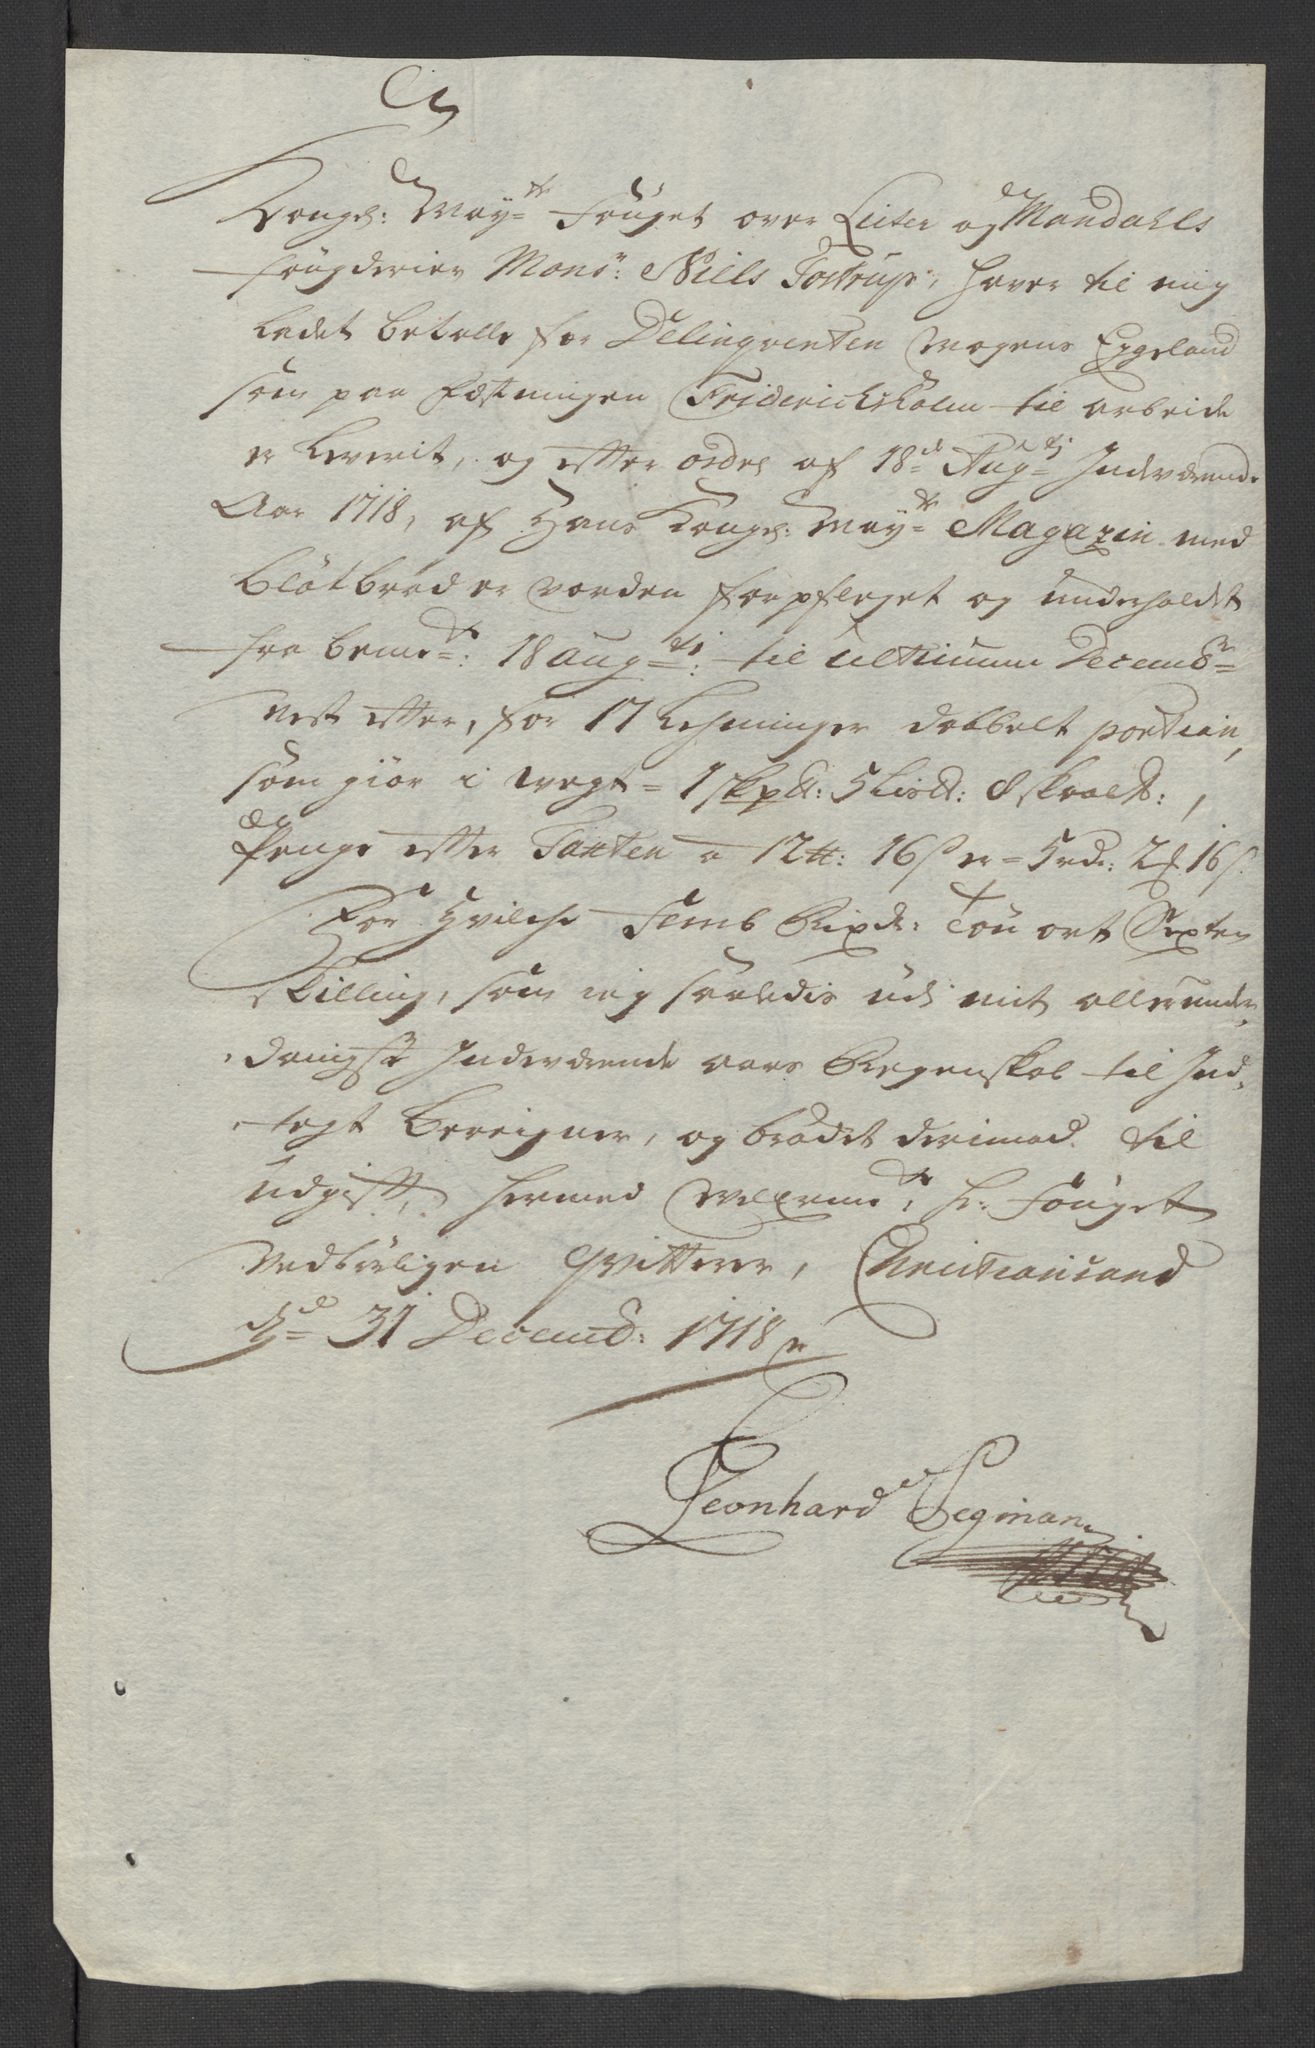 Kongel: May=ts Fouget over Lister og Mandahls
Fougderier Monsr: Niels Tostrup, haver til mig
ladet betalle for Delinqventen Mogens Eggeland
som paa Fæstningen Friderichsholm til arbeide
er leverit, og efter ordre af 18de Aug=ti Indeværende
Aar 1718, af Hans Kongel: May=ts Magazin med
Blötbröd er worden forpfleget og underholdet
fra bemte: 18 aug=ti: til ultimum Decembr=
nest efter, for 17 Lehninger dobbelt portion,
som giör i wegt = 1 skpd: 5 lisd: 8 skaald:,
Penge efter Taxten a 12 ℔: 16 s er = 5 rdr: 2 ort 16 s.
For Hvilche Femb Rixdr: Tou ort Sexten
skilling, som ieg saaledis udi mit allerunder-
danigste Indeværende aars Regenskab til Ind-
tegt bereigner, og brödet derimod til
udgift, hermed welbemte: hr: Fouget
vedbörligen qvitterer, Christiansand
dend 31 Decemb: 1718
Leonhard Segman